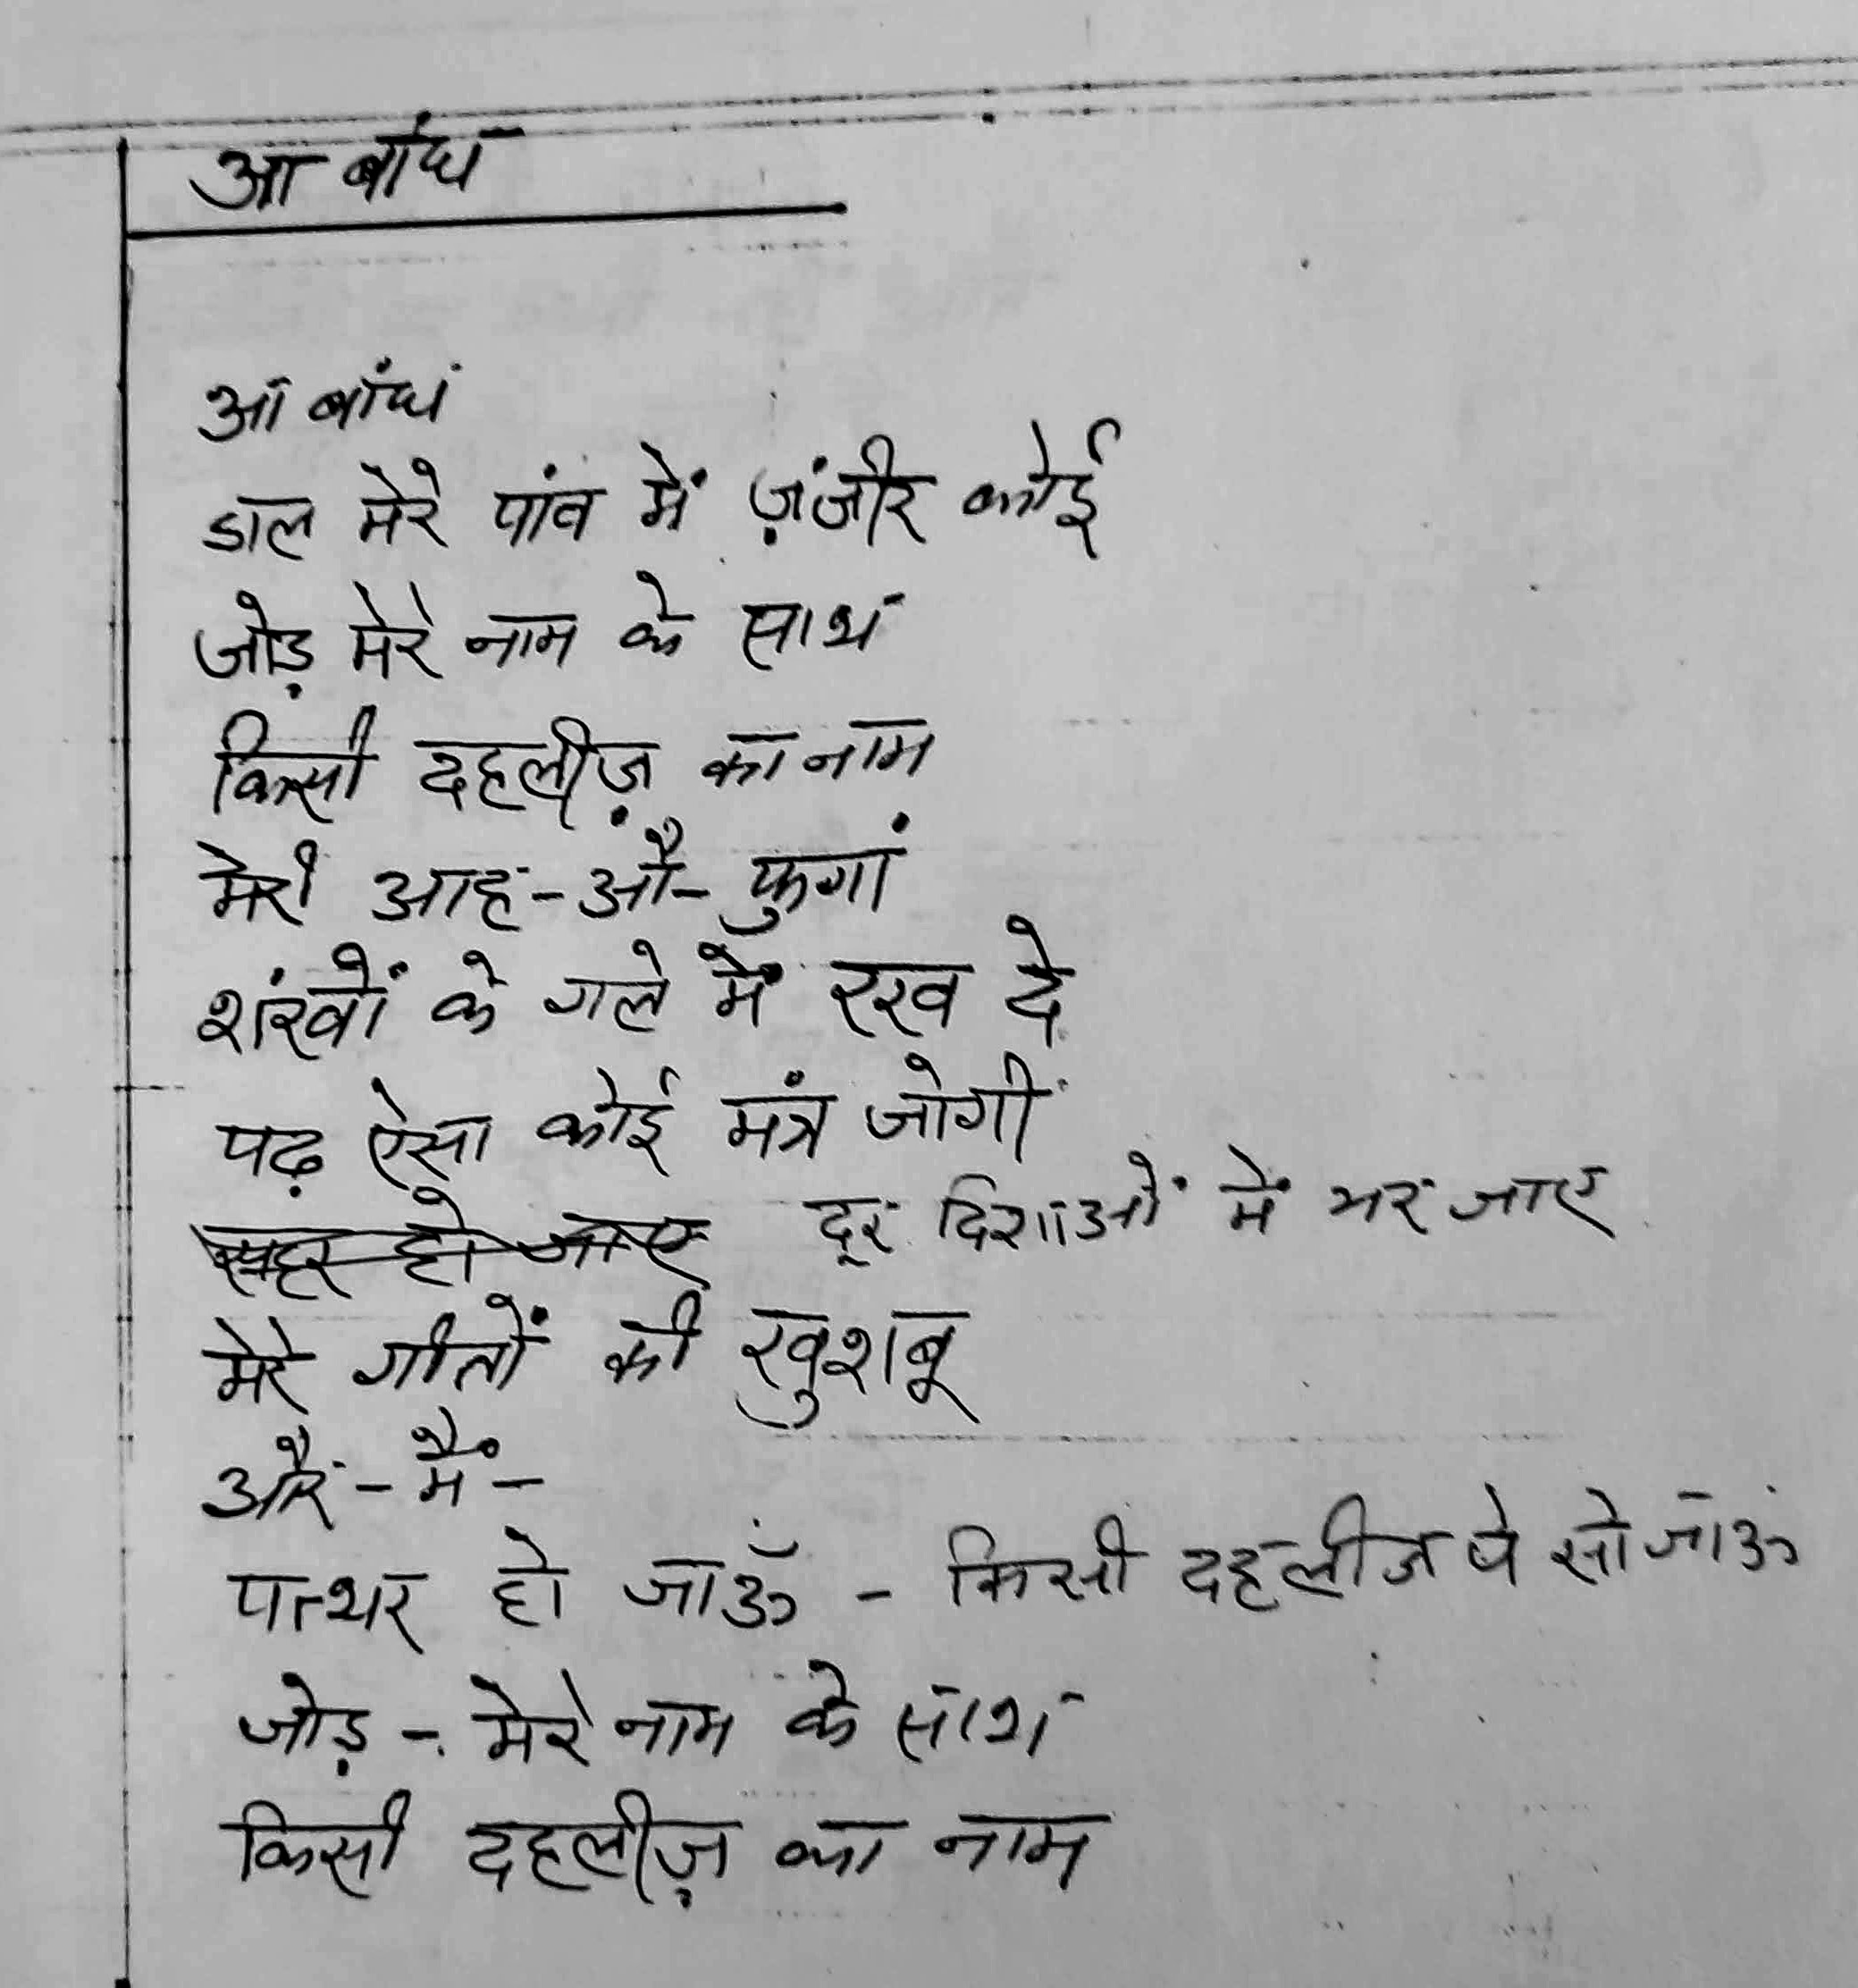 आ बांध
आ बांध
डाल मेरे पांव में ज़ंजीर कोई
जोड़ मेरे नाम के साथ
किसी दहलीज़ का नाम
मेरी आह-औ-फुगां
शंखों के गले में रख दे
पढ़ ऐसा कोई मंत्र जोगी
सहर हो जाए दूर दिशाओं में भर जाए
मेरे गीतों की खुशबू
और - मैं -
पत्थर हो जाऊँ - किसी दहलीज पे सो जाऊं
जोड़ - मेरे नाम के साथ
किसी दहलीज़ का नाम